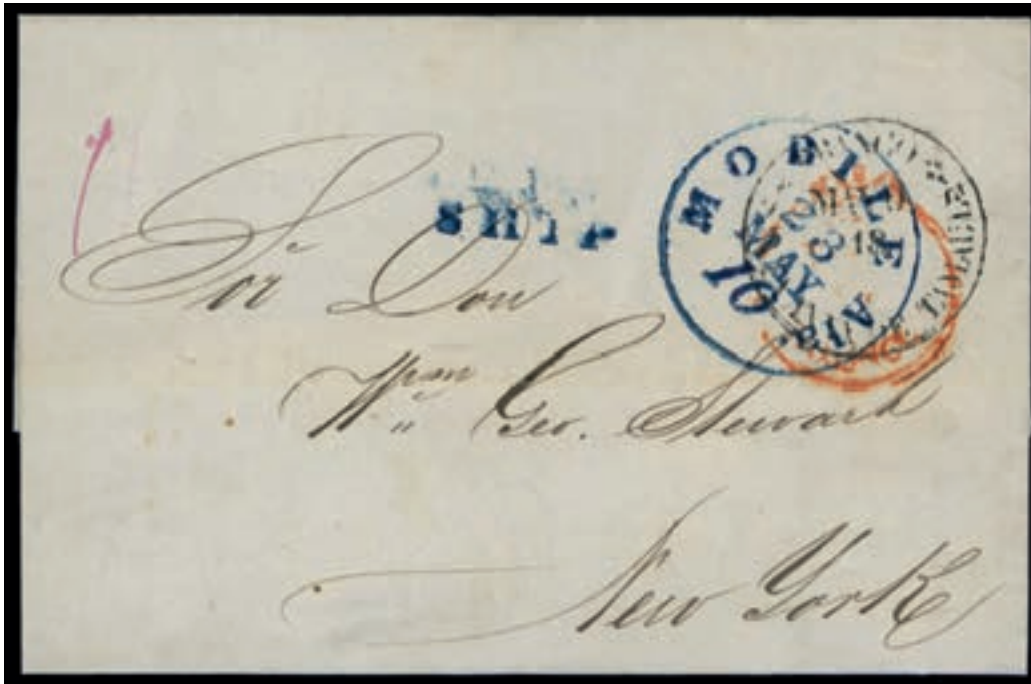 SHIP
MOBILE
ALA
MAY
23
10
Sor Don
Wm Geo. Stewart
New York